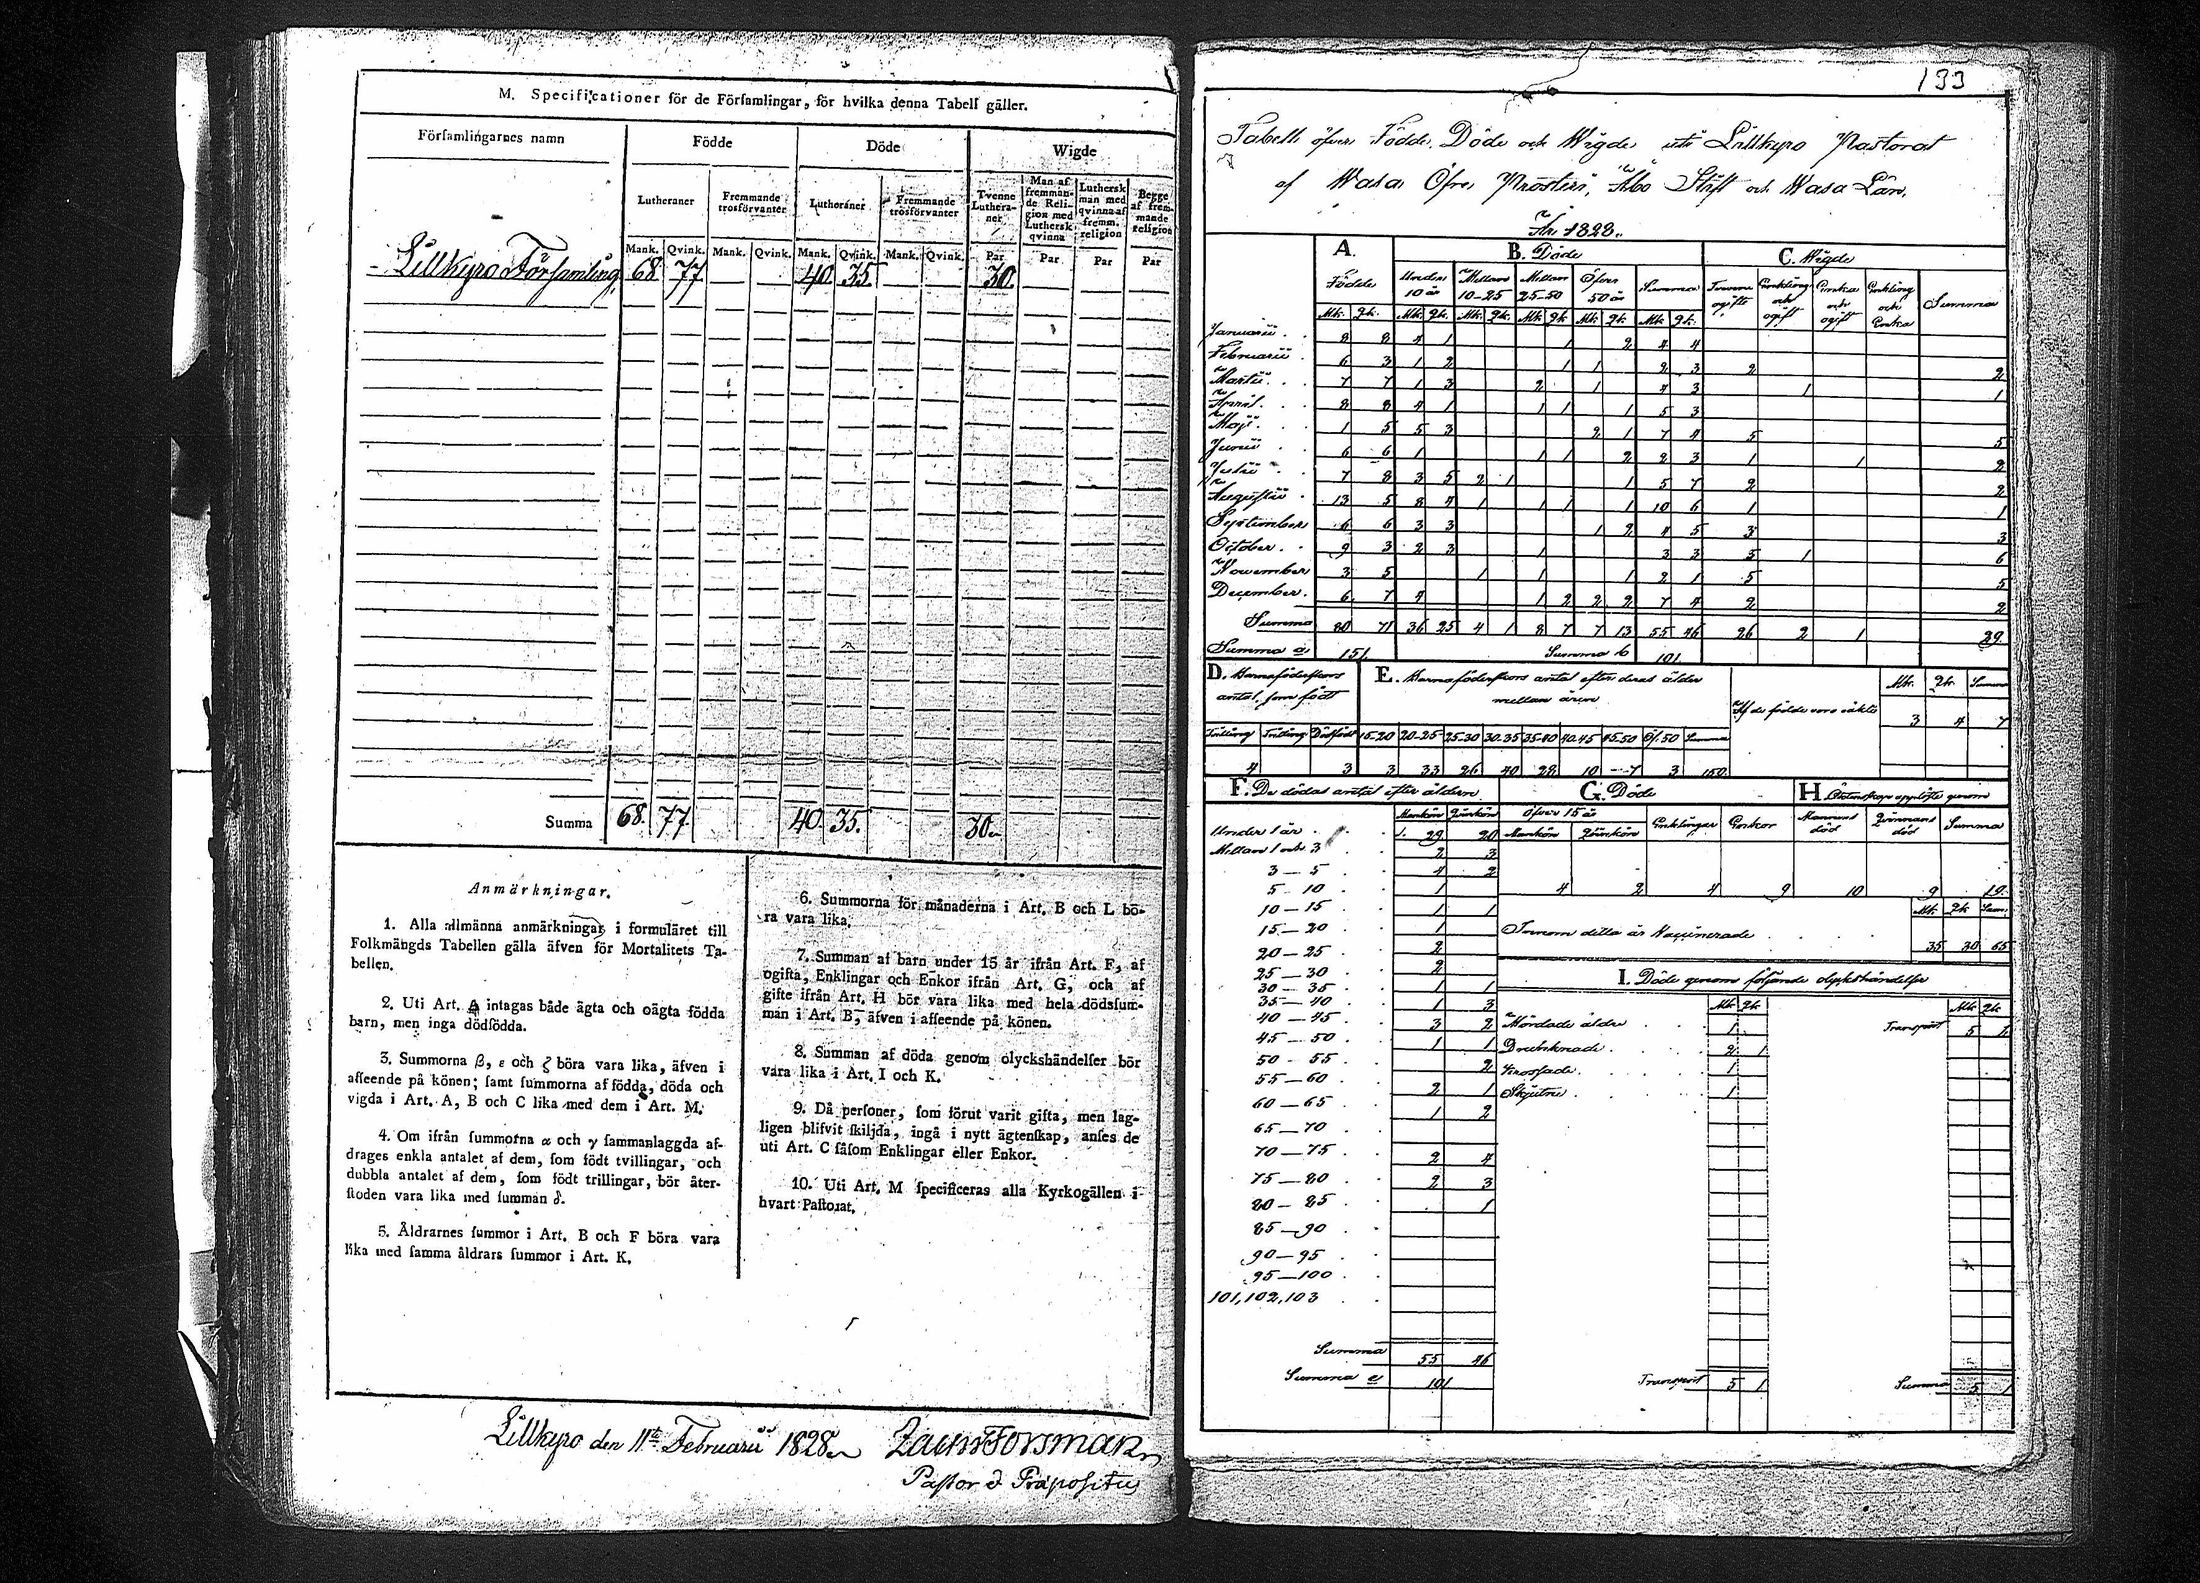 M. Specificationer för de Församlingar, för hvilka denna Tabell gäller.
Församlingarnes namn | Födde | Döde | Wigde
Lutheraner | Fremmande trosförvanter | Lutheraner | Fremmande trosförvanter | Tvenne Lutheraner | Man af fremmande Religion med Luthersk qvinna | Luthersk man med qvinna af fremm. religion | Begge af fremmande religion
Mank. | Qvink. | Mank. | Qvink. | Mank. | Qvink. | Mank. | Qvink. | Par | Par | Par | Par
Lillkyro Församling, 68. 77. 40. 35. 30.
Summa 68. 77. 40. 35. 30.
Anmärkningar.
1. Alla allmänna anmärkningar i formuläret till
Folkmängds Tabellen gälla äfven för Mortalitets Ta-
bellen.
2. Uti Art. A intagas både ägta och oägta födda
barn, men inga dödfödda.
3. Summorna β, ε och ζ böra vara lika, äfven i
afseende på könen; samt summorna af födda, döda och
vigda i Art. A, B och C lika med dem i Art. M.
4. Om ifrån summorna α och γ sammanlaggda af-
drages enkla antalet af dem, som födt tvillingar, och
dubbla antalet af dem, som födt trillingar, bör åter-
stoden vara lika med summan δ.
5. Åldrarnes summor i Art. B och F böra vara
lika med samma åldrars summor i Art. K.
6. Summorna för månaderna i Art. B och L bö-
ra vara lika.
7. Summan af barn under 15 år ifrån Art. F, af
ogifta, Enklingar och Enkor ifrån Art. G, och af
gifte ifrån Art. H bör vara lika med hela dödssum-
man i Art. B, äfven i afseende på könen.
8. Summan af döda genom olyckshändelser bör
vara lika i Art. I och K.
9. Då personer, som förut varit gifta, men lag-
ligen blifvit skiljda, ingå i nytt ägtenskap, anses de
uti Art. C såsom Enklingar eller Enkor.
10. Uti Art. M specificeras alla Kyrkogällen i
hvart Pastorat.
Lillkyro den 11te Februarii 1828. Forsman
Pastor & Præpositus
133
Tabell öfver Födde, Döde och Wigde uti Lillkyro Pastorat
af Wasa Öfre Prosteri, Åbo Stift och Wasa Län,
År 1828.
A. Födde | B. Döde | C. Wigde
Under 10 år | Mellan 10-25 | Mellan 25-50 | Öfver 50 år | Summa | Tvenne ogifte | Enkling och ogift | Enka och ogift | Enkling och Enka | Summa
Mk. Qk. Mk. Qk. Mk. Qk. Mk. Qk. Mk. Qk. Mk. Qk.
Januarii 8 8 4 1 1 2 4 4
Februarii 6 3 1 2 1 1 2 3 2 2
Martii 7 7 1 3 2 1 4 3 1 1
April 8 8 4 1 1 1 1 5 3
Maji 1 5 5 3 2 1 7 4 5 5
Junii 6 6 1 1 1 2 2 3 1 1 2
Julii 7 8 3 5 2 1 1 5 7 2 2
Augustii 13 5 8 4 1 1 1 1 10 6 1 1
September 6 6 3 3 1 2 4 5 3 3
October 9 3 2 3 1 3 3 5 1 6
November 3 5 1 1 1 2 1 5 5
December 6 7 4 1 2 2 2 7 4 2 2
Summa 80 71 36 25 4 1 8 7 7 13 55 46 26 2 1 29
Summa α 151. Summa b 101
D. Barnaföderskors antal, som födt
E. Barnaföderskors antal efter deras ålder mellan åren
Af de födde voro oäkta
Mk. Qk. Summa
3 4 7
Tvilling | Trilling | Dödfödt | 15-20 | 20-25 | 25-30 | 30-35 | 35-40 | 40-45 | 45-50 | Öf. 50 | Summa
4 3 3 33 26 40 28 10 7 3 150
F. De dödas antal efter åldern. | G. Döde | H. Äktenskap upplöste genom
Mankön Qvinkön
öfver 15 år
Mankön | Qvinkön | Enklingar | Enkor | Mannens död | Qvinnans död | Summa
4 2 4 9 10 9 19
Under 1 år 29 20
Mellan 1 och 3 2 3
3 — 5 4 2
5 — 10 1
10 — 15 1 1
15 — 20 1
20 — 25 2
25 — 30 2
30 — 35 1 1
35 — 40 1 3
40 — 45 3 2
45 — 50 1 1
50 — 55 2
55 — 60 2 1
60 — 65 1 2
65 — 70
70 — 75 2 4
75 — 80 2 3
80 — 85 1
85 — 90
90 — 95
95 — 100
101, 102, 103
Summa 55 46
Summa e 101
Innom detta år Vaccinerade
Mk. Qk. Sum.
35 30 65
I. Döde genom följande olyckshändelser
Mk. Qk. Mk. Qk.
Mördade äldre 1 Transport 5 1
Drunknade 2 1
Krossade 1
Skjutne 1
Transport 5 1 Summa 5 1